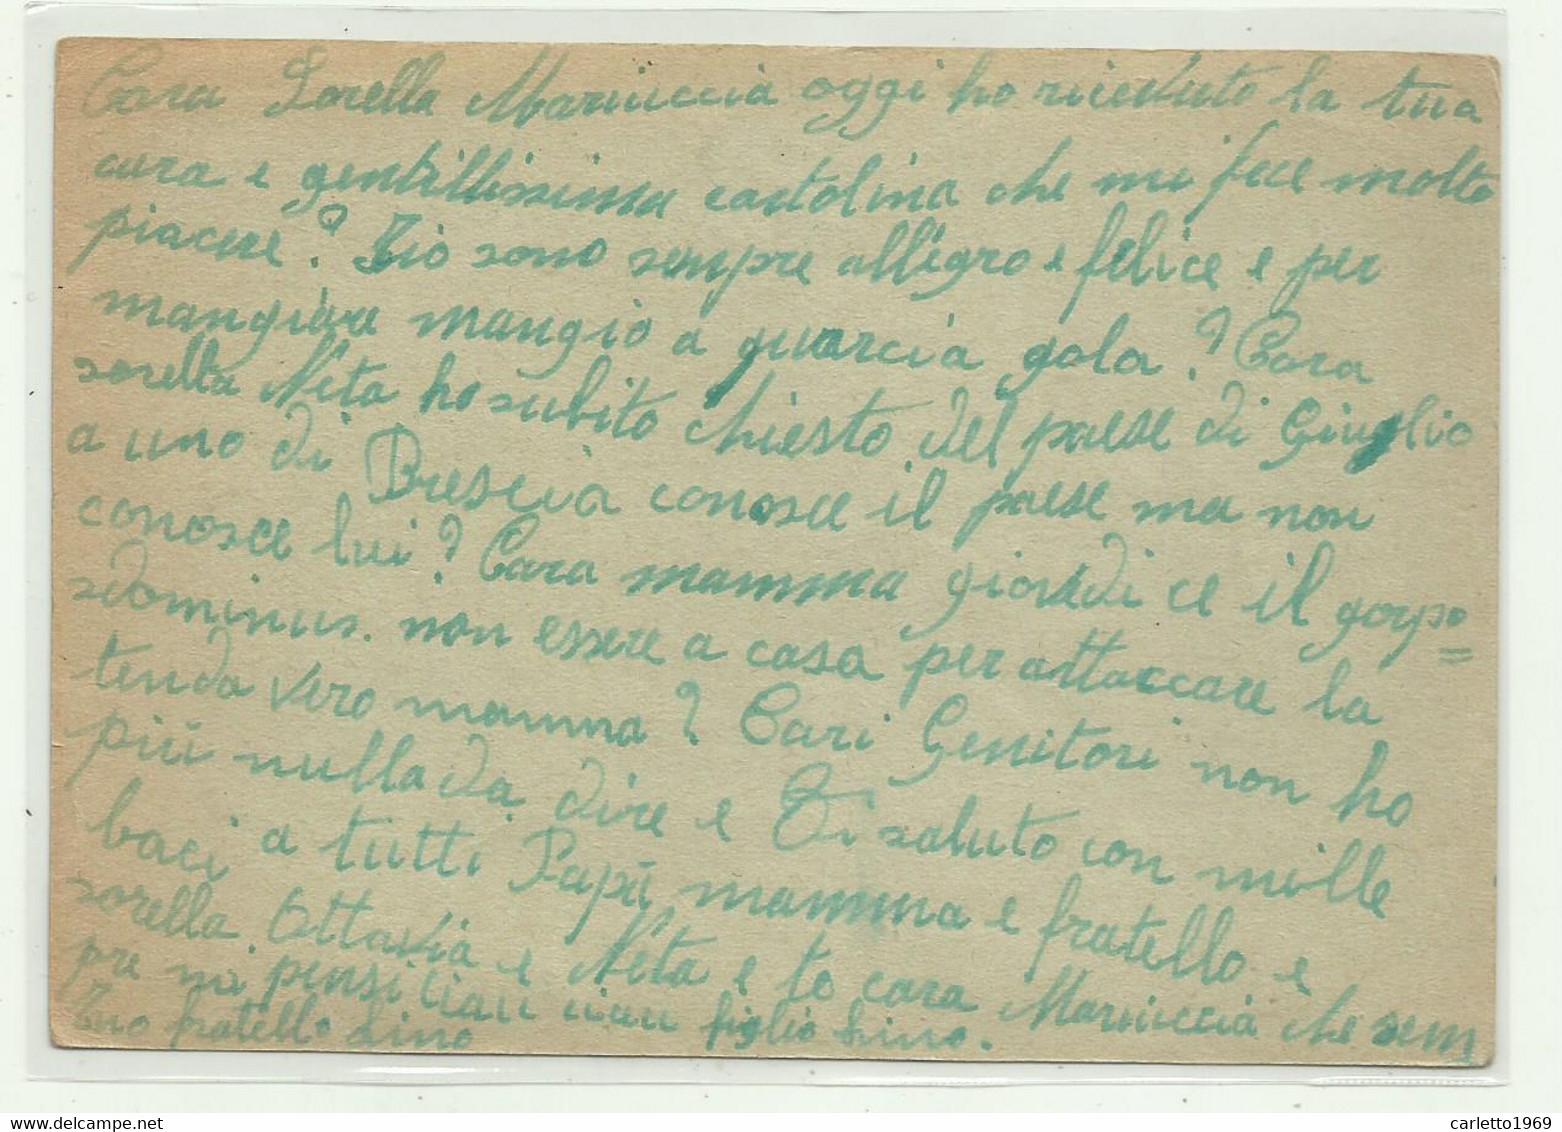 Cara Sorella Mariuccia oggi ho ricevuto la tua
cara e gentillissima cartolina che mi fece molto
piacere? Zio sono sempre allegro e felice e per
mangiare mangio a quarcia gola? Cara
sorella Neta ho subito chiesto del paese di Giuglio
a uno di Brescia conosce il paese ma non
conosce lui? Cara mamma giovedi ce il gorpo=
sdominus. non essere a casa per attaccare la
tenda vero mamma? Cari Genitori non ho
più nulla da dire e Vi saluto con mille
baci a tutti Papà mamma e fratello e
sorella Ottavia e Neta e te cara Mariuccia che sem
pre mi pensi ciau ciau figlio Lino.
Tuo fratello Lino
carletto1969